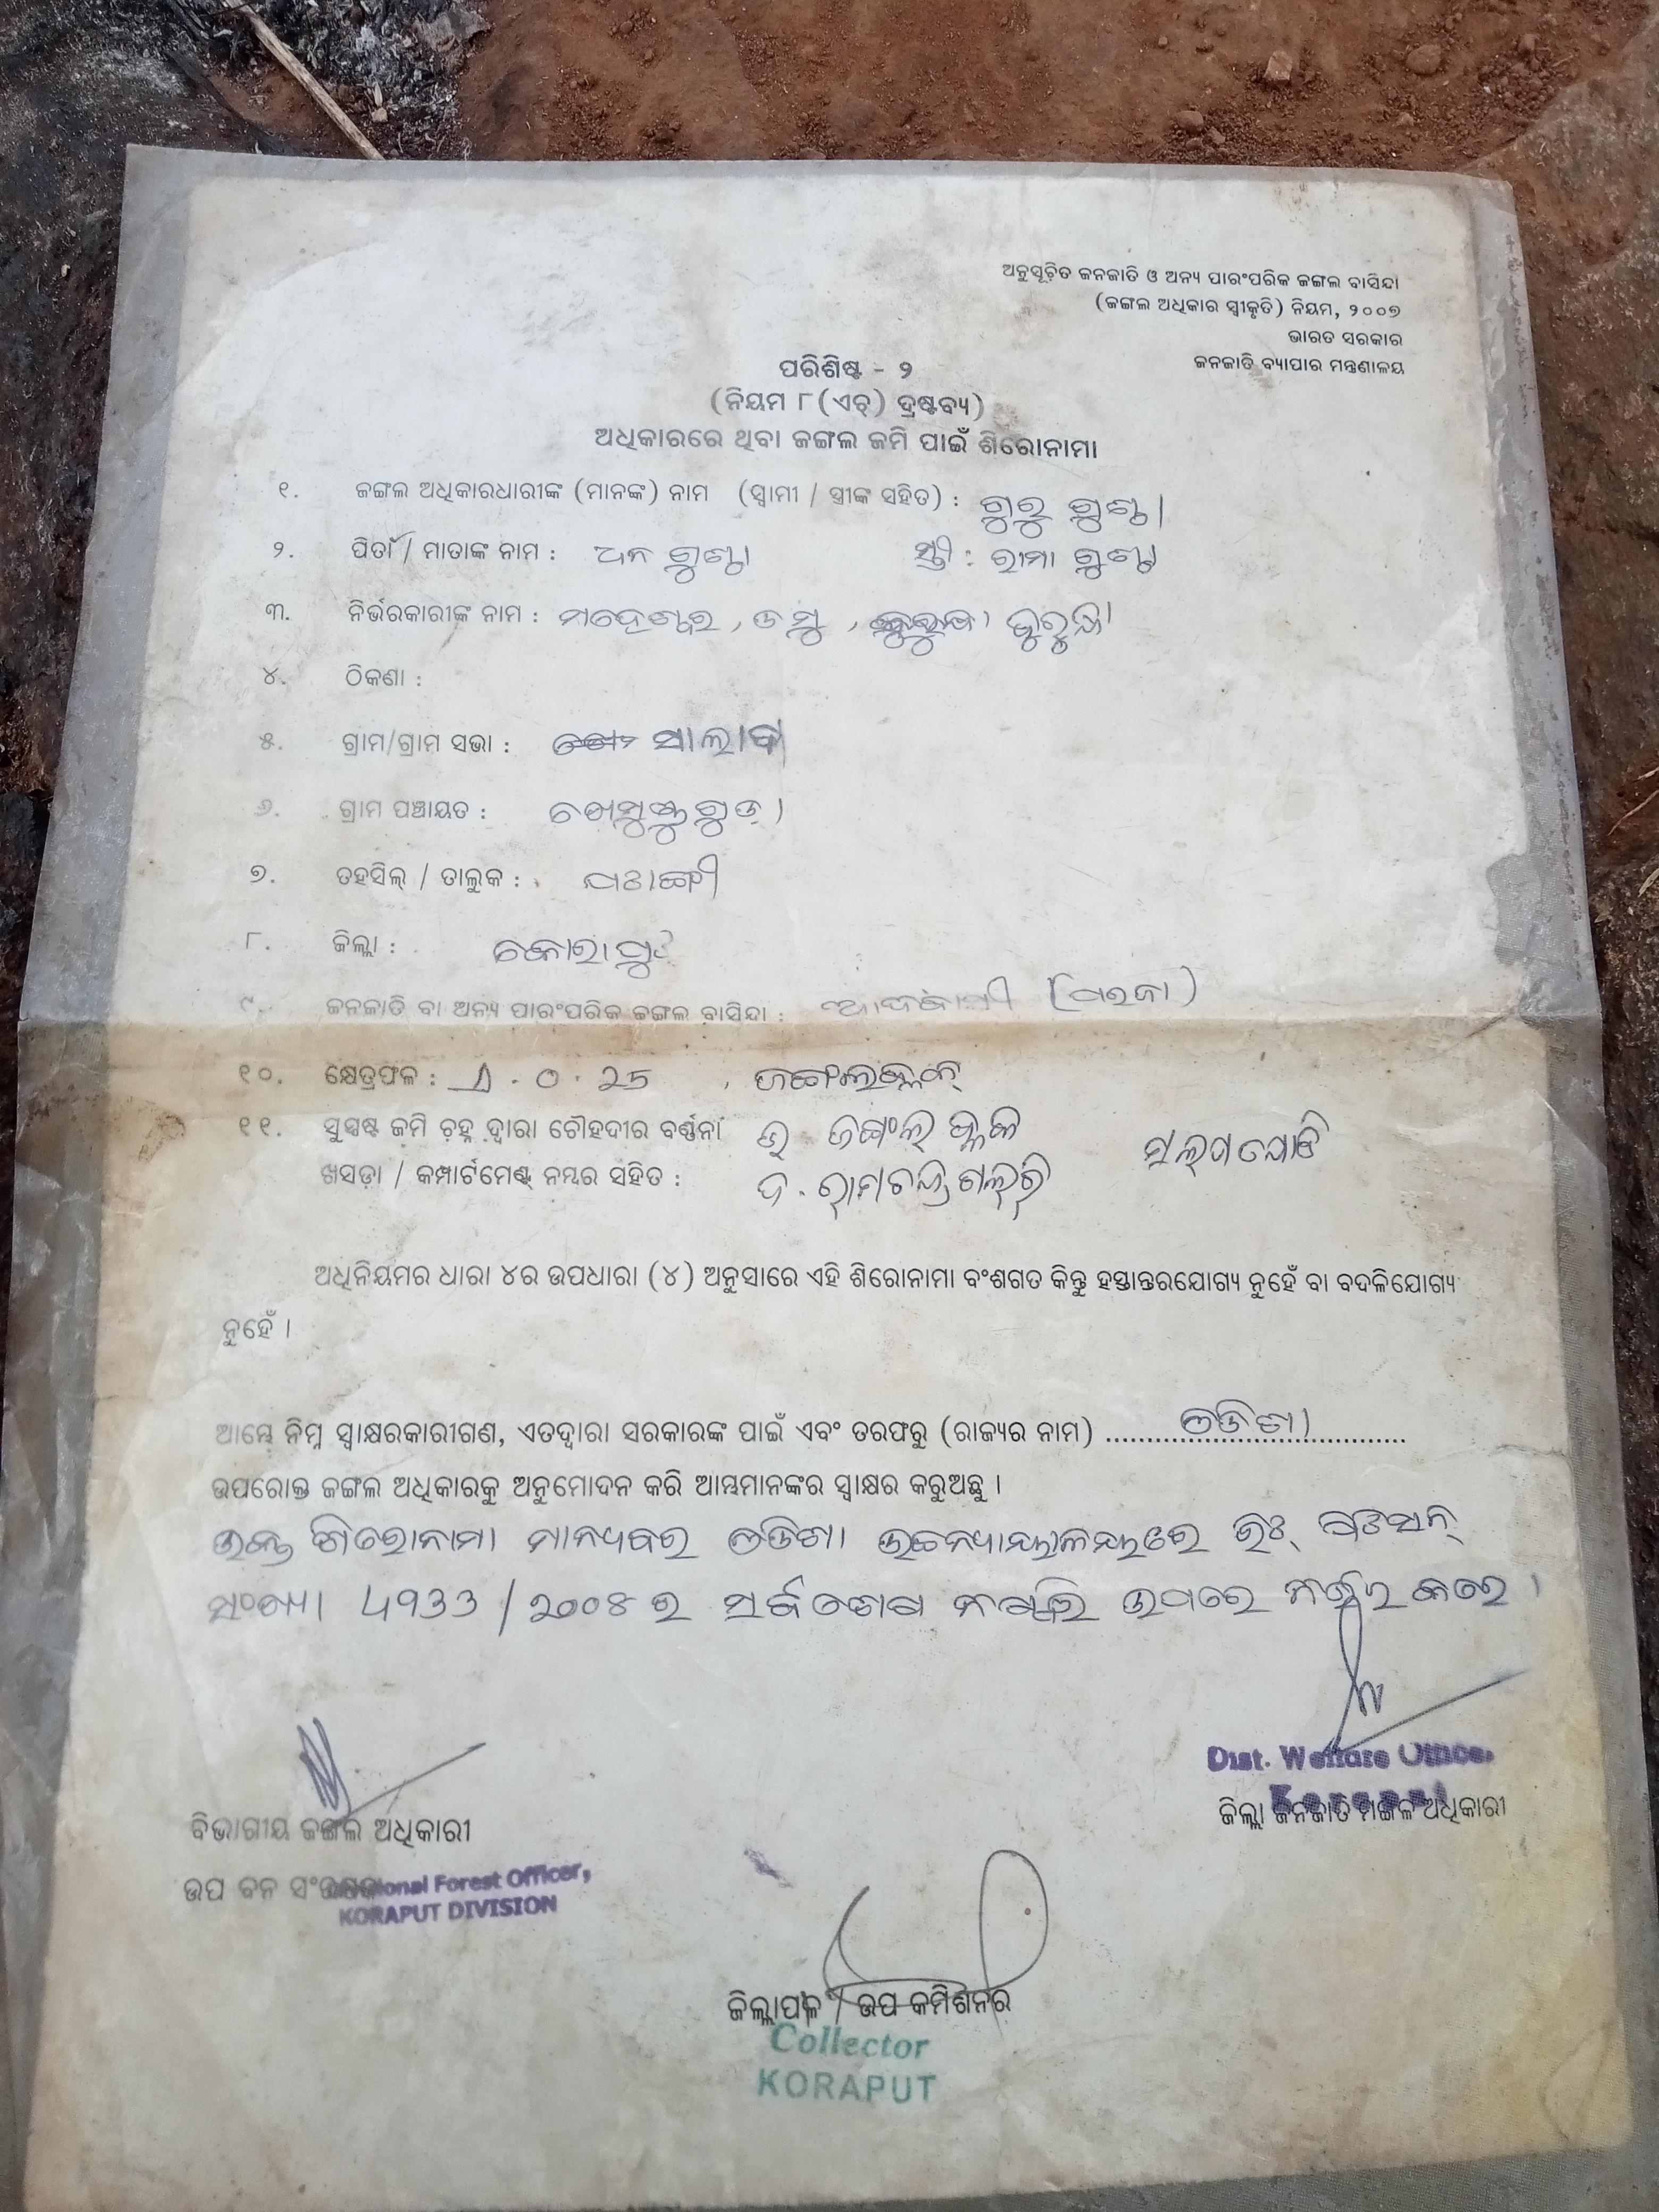 ଅନୁସୂଚିତ ଜନଜାତି ଓ ଅନ୍ୟ ପାରଂପରିକ ଜଙ୍ଗଲ ବାସିନ୍ଦା
(ଜଙ୍ଗଲ ଅଧିକାର ସ୍ୱୀକୃତି) ନିୟମ, ୨୦୦୭
ଭାରତ ସରକାର
ଜନଜାତି ବ୍ୟାପାର ମନ୍ତ୍ରଣାଳୟ
ପରିଶିଷ୍ଟ - ୨
(ନିୟମ ୮(ଏଚ୍) ଦ୍ରଷ୍ଟବ୍ୟ)
ଅଧିକାରରେ ଥିବା ଜଙ୍ଗଲ ଜମି ପାଇଁ ଶିରୋନାମା
୧. ଜଙ୍ଗଲ ଅଧିକାରଧାରୀଙ୍କ (ମାନଙ୍କ) ନାମ (ସ୍ୱାମୀ / ସ୍ତ୍ରୀଙ୍କ ସହିତ) : ଗୁରୁ ଗୁଣ୍ଠା
୨. ପିତା / ମାତାଙ୍କ ନାମ : ଧନ ଗୁଣ୍ଠା ସ୍ତ୍ରୀ : ରାମା ଗୁଣ୍ଠା
୩. ନିର୍ଭରକାରୀଙ୍କ ନାମ : ମହେଶ୍ୱର, ଡମ୍ବୁ,
୪. ଠିକଣା :
୫. ଗ୍ରାମ/ଗ୍ରାମ ସଭା :
୬. ଗ୍ରାମ ପଞ୍ଚାୟତ :
୭. ତହସିଲ୍ / ତାଲୁକ : ପଟାଙ୍ଗୀ
୮. ଜିଲ୍ଲା : କୋରାପୁଟ
୯. ଜନଜାତି ବା ଅନ୍ୟ ପାରଂପରିକ ଜଙ୍ଗଲ ବାସିନ୍ଦା : ଆଦିବାସୀ (ପରଜା)
୧୦. କ୍ଷେତ୍ରଫଳ : 0.25
୧୧. ସୁସ୍ପଷ୍ଟ ଜମି ଚିହ୍ନ ଦ୍ୱାରା ଚୌହଦୀର ବର୍ଣ୍ଣନା ଉ. ଜଙ୍ଗଲ
ଖସଡ଼ା / କମ୍ପାର୍ଟମେଣ୍ଟ୍ ନମ୍ବର ସହିତ : ଦ. ରାମଚନ୍ଦ୍ର
ଅଧିନିୟମର ଧାରା ୪ର ଉପଧାରା (୪) ଅନୁସାରେ ଏହି ଶିରୋନାମା ବଂଶଗତ କିନ୍ତୁ ହସ୍ତାନ୍ତରଯୋଗ୍ୟ ନୁହେଁ ବା ବଦଳିଯୋଗ୍ୟ
ନୁହେଁ ।
ଆମ୍ଭେ ନିମ୍ନ ସ୍ୱାକ୍ଷରକାରୀଗଣ, ଏତଦ୍ଦ୍ୱାରା ସରକାରଙ୍କ ପାଇଁ ଏବଂ ତରଫରୁ (ରାଜ୍ୟର ନାମ) ଓଡିଶା
ଉପରୋକ୍ତ ଜଙ୍ଗଲ ଅଧିକାରକୁ ଅନୁମୋଦନ କରି ଆମ୍ଭମାନଙ୍କର ସ୍ୱାକ୍ଷର କରୁଅଛୁ ।
ଉକ୍ତ ଶିରୋନାମା ମାନ୍ୟବର ଓଡିଶା ଉଚ୍ଚନ୍ୟାୟାଳୟରେ ରିଟ୍ ପିଟିସନ୍
ସଂଖ୍ୟା 4933/2008 ର ସର୍ବଶେଷ ନିଷ୍ପତ୍ତି ଉପରେ ନିର୍ଭର କରେ ।
Dist. Welfare Officer
Koraput
ଜିଲ୍ଲା ଜନଜାତି ମଙ୍ଗଳ ଅଧିକାରୀ
ବିଭାଗୀୟ ଜଙ୍ଗଲ ଅଧିକାରୀ
ଉପ ବନ ସଂରକ୍ଷକ
Divisional Forest Officer,
KORAPUT DIVISION
ଜିଲ୍ଲାପାଳ / ଉପ କମିଶନର
Collector
KORAPUT